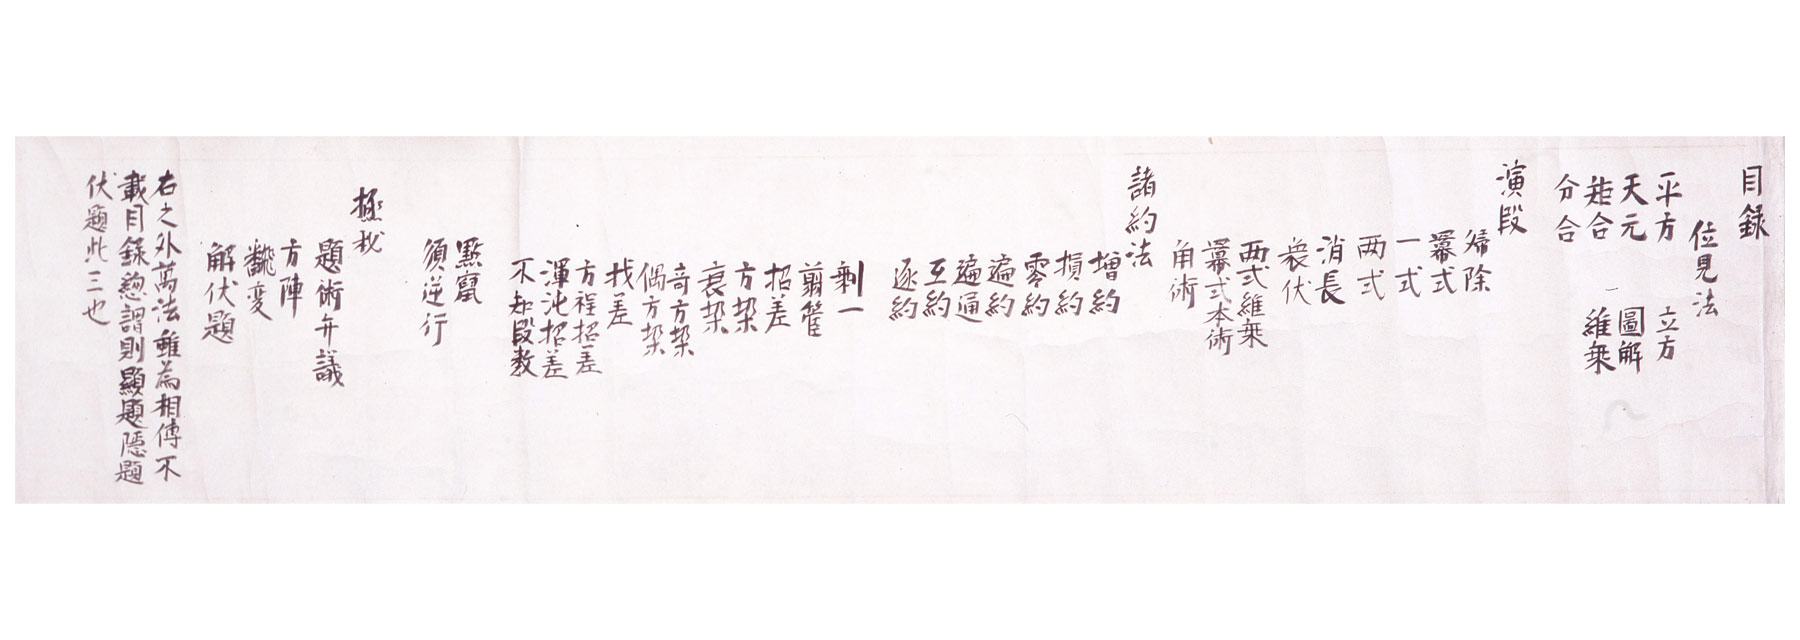 目録
位見法
平方 立方
天元 圖解
矩合 維乗
分合
演段
帰除
冪式
一式
两式
消長
衰伏
两式維乗
冪式本術
角術
諸約法
増約
損約
零約
遍約
遍通
互約
逐約
剰一
翦管
招差
方垜
衰垜
奇方垜
偶方垜
找差
方程招差
渾沌招差
不知段数
點竄
須逆行
極教
題術弁議
方陣
飜変
解伏題
右之外萬法雖為相傳不
載目録惣謂則顯題隠題
伏題此三也